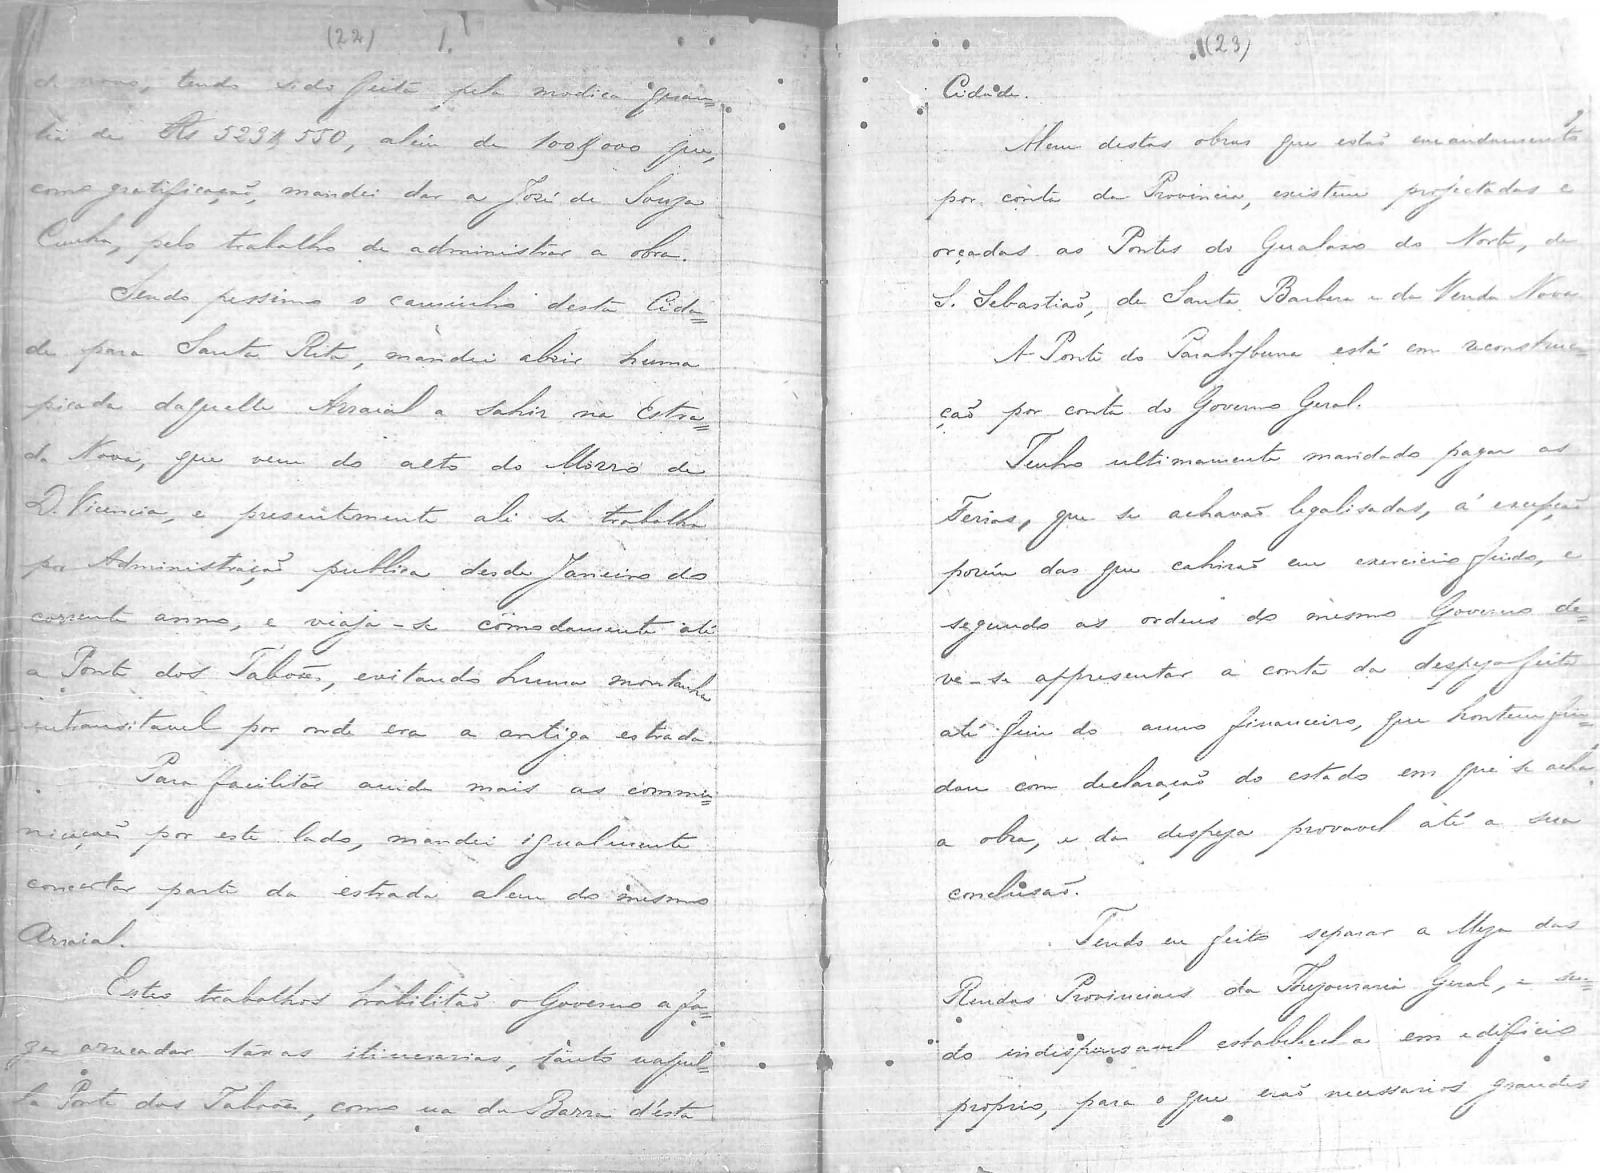 (22)
de novo, tendo sido feita pela modica quan-
tia de Rs 523$550, alêm de 100$000 que,
como gratificação, mandei dar a José de Souza
Cunha, pelo trabalho de administrar a obra.
Sendo pessimo o caminho desta Cida=
de para Santa Rita, mandei abrir huma
picada daquelle Arraial a sahir na Estra=
da Nova, que vem do alto do Morro de
D. Vicencia, e presentemente ali se trabalha
por Administração publica desde Janeiro do
corrente anno, e viaja-se cómodamente até
a Ponte dos Taboões, evitando huma montanha
intransitavel por onde era a antiga estrada.
Para facilitar ainda mais as commu=
nicações por este lado, mandei igualmente
concertar parte da estrada alem do mesmo
Arraial.
Estes trabalhos habilitão o Governo a fa=
zer arrecadar táxas itinerarias, tanto naquel=
la Ponte dos Taboões, como na da Barra d'esta
(23)
Cidade.
Alem destas obras que estão em andamento
por conta da Provincia, existem projectadas e
orçadas as Pontes do Gualaxo do Norte, de
S. Sebastião, de Santa Barbara e da Venda Nova.
A Ponte do Parahybuna está em reconstruc=
ção por conta do Governo Geral.
Tenho ultimamente mandado pagar as
Ferias, que se achavão legalisadas, á excepção
porém das que cahirão em exercicio findo, e
segundo as ordens do mesmo Governo de=
ve-se appresentar a conta da despeza feita
até fim do anno financeiro, que hontem fin=
dou com declaração do estado em que se acha
a obra, e da despeza provavel até a sua
conclusão.
Tendo eu feito separar a Meza das
Rendas Provinciaes da Thezouraria Geral, e sen=
do indispensavel estabelecel-a em edificio
proprio, para o que erão necessarios grandes